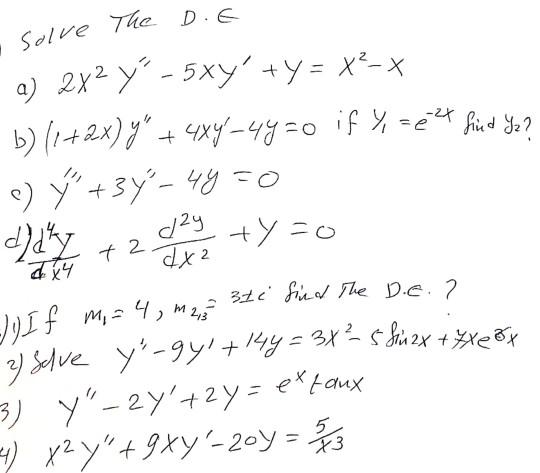 Solve The D.E
a) 2x² y'' - 5xy' + y = x² - x
b) (1+2x) y'' + 4xy' - 4y = 0 if y₁ = e^-2x find y₂?
c) y''' + 3y'' - 4y = 0
d) d⁴y/dx⁴ + 2 d²y/dx² + y = 0
1) If m₁ = 4, m₂,₃ = 3±i find The D.E. ?
2) Solve y'' - 9y' + 14y = 3x² - 5 sin 2x + 7xe^6x
3) y'' - 2y' + 2y = e^x tanx
4) x² y'' + 9xy' - 20y = 5/x³